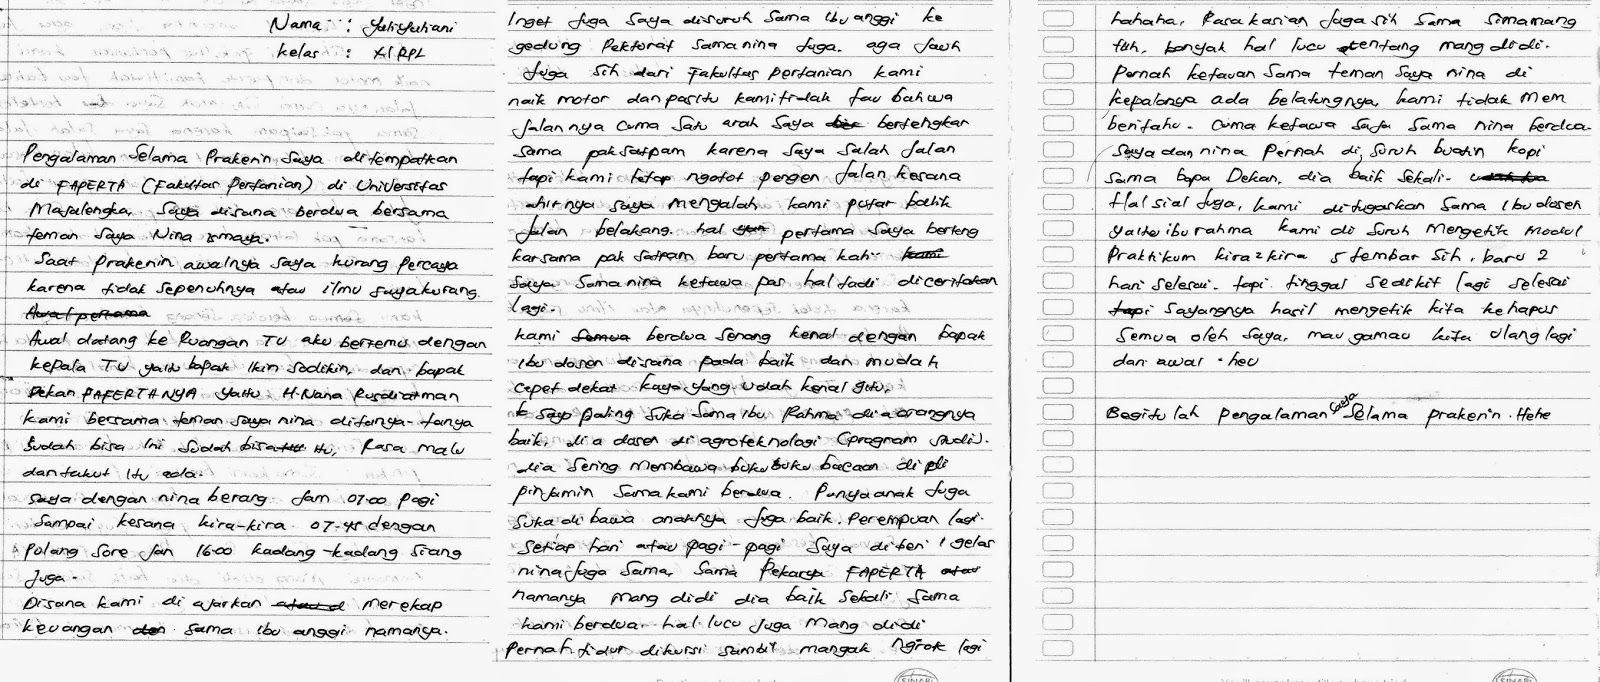 Nama : Yuliyuliani
kelas : XI RPL
Pengalaman Selama Prakerin Saya ditempatkan
di FAPERTA (Fakultas Pertanian) di Universitas
Majalengka, Saya disana berdua bersama
teman Saya Nina ismaya.
Saat Prakerin awalnya saya kurang Percaya
karena tidak Sepenuhnya atau ilmu saya kurang.
Awal pertama
Awal datang ke Ruangan TU aku bertemu dengan
kepala TU yaitu bapak Ikin Sodikin, dan bapak
Dekan FAFERTANYA yaitu H. Nana Rusdiatman
kami bersama teman saya nina ditanya-tanya
Sudah bisa Ini Sudah bisa Itu, Rasa malu
dan takut Itu ada.
saya dengan nina berang Jam 07.00 pagi
Sampai kesana kira-kira 07-45 dengan
Polang Sore Jan 16.00 kadang-kadang Siang
Juga-
Disana kami di ajarkan merekap
keuangan Sama Ibu anggi namanya.
Inget Juga Saya disuruh Sama Ibu anggi ke
gedung Rektorat Sama nina Juga. aga Jauh
Juga Sih dari Fakultas pertanian kami
naik motor dan pasitu kami tidak tau bahwa
Jalannya Cuma Satu arah Saya bertengkar
Sama pak satpam karena Saya Salah Jalan
tapi kami tetap ngotot pengen Jalan kesana
ahirnya saya mengalah kami putar balik
Jalan belakang. hal pertama Saya berteng
kar sama pak satpam baru pertama kali
Saya Sama nina ketawa pas hal tadi diceritakan
lagi.
kami Semua berdua Senang kenal dengan bapak
Ibu dosen disana pada baik dan mudah
cepet dekat kaya yang udah kenal gitu,
Saya Paling Suka Sama Ibu Rahma dia orangnya
baik, dia dosen di agroteknologi (program studi).
dia Sering membawa buku buku bacaan di
pinjamin Sama kami berdua. Punya anak Juga
Suka di bawa anaknya Juga baik. Perempuan lagi.
Setiap hari atau pagi-pagi Saya diberi 1 gelas
nina Juga Sama, Sama Pekarya FAPERTA atau
namanya mang didi dia baik Sekali Sama
kami berdua. hal lucu Juga Mang didi
Pernah tidur dikursi Sambil mangak Ngrok lagi
hahaha, Rasa kasian Juga sih Sama Simamang
tuh, banyak hal lucu tentang mang didi.
Pernah ketauan Sama teman Saya nina di
kepalanya ada belatungnya, kami tidak mem
beritahu. Cuma ketawa saja Sama nina berdua.
Saya dan nina Pernah di Suruh buatin kopi
Sama bapa Dekan, dia baik Sekali.
Hal sial Juga, kami ditugaskan Sama Ibu dosen
yaitu ibu rahma kami di Suruh Mengetik Modul
Praktikum kira2kira 5 lembar Sih, baru 2
hari Selesai. tapi tinggal Sedikit lagi Selesai
tapi Sayangnya hasil mengetik kita kehapus
Semua oleh Saya, mau gamau kita Ulang lagi
dari awal - heu
Begitu lah pengalaman Saya Selama prakerin. Hehe